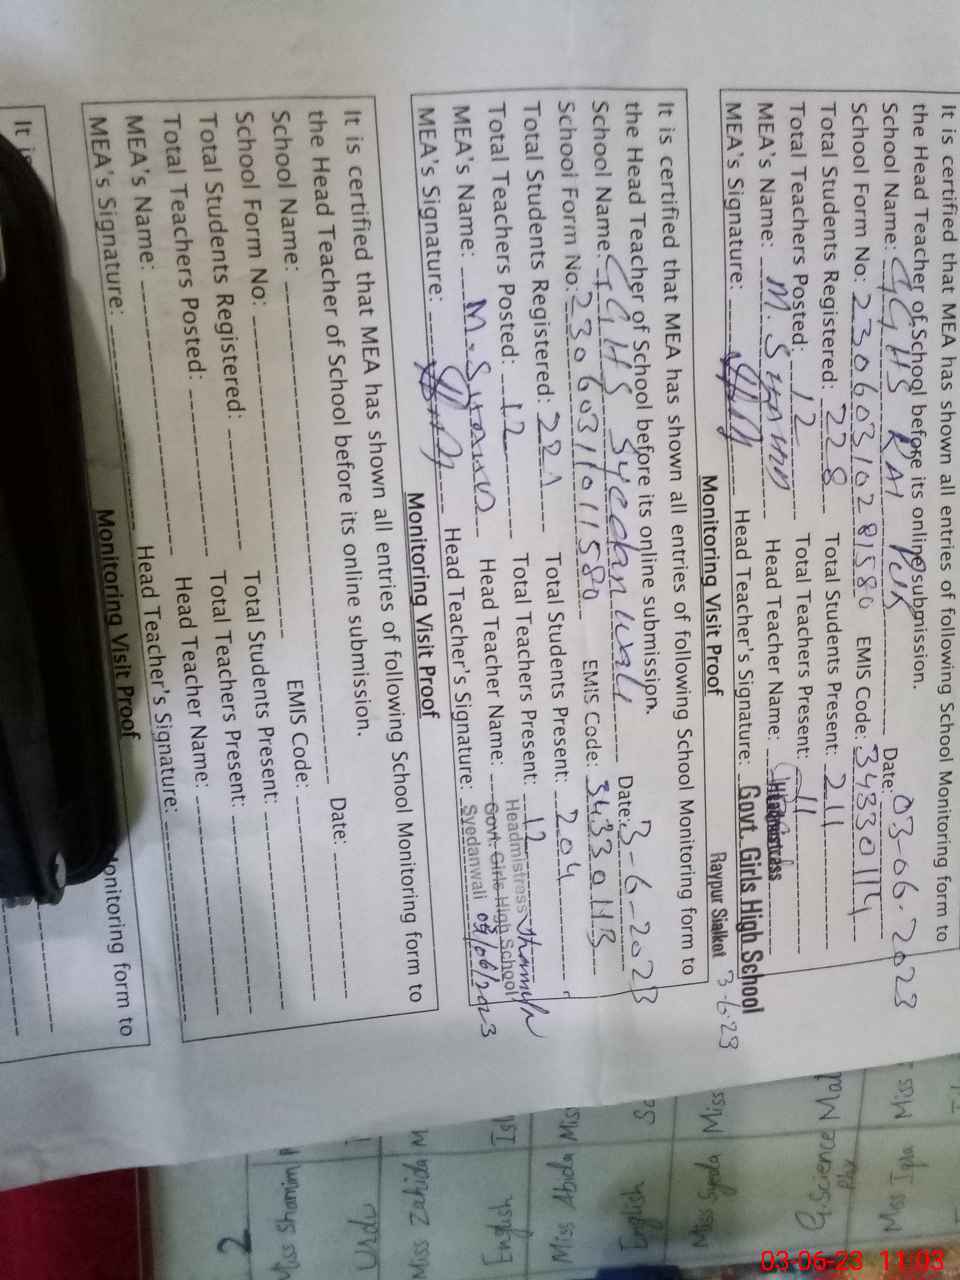 It is certified that MEA has shown all entries of following School Monitoring form to
the Head Teacher of School before its online submission.
School Name: GGHS RAI PUR Date: 03-06-2023
School Form No: 23060310281580 EMIS Code: 34330114
Total Students Registered: 228 Total Students Present: 211
Total Teachers Posted: 12 Total Teachers Present: 11
MEA's Name: M. Head Teacher Name: Headmistress
MEA's Signature: Head Teacher's Signature: Govt. Girls High School
Raypur Sialkot 3-6-23
Monitoring Visit Proof
It is certified that MEA has shown all entries of following School Monitoring form to
the Head Teacher of School before its online submission.
School Name: GGHS Syedanwali Date: 3-6-2023
School Form No: 23060311011580 EMIS Code: 34330113
Total Students Registered: 221 Total Students Present: 204
Total Teachers Posted: 12 Total Teachers Present: 12
MEA's Name: M. Head Teacher Name: Headmistress
Govt. Girls High School
MEA's Signature: Head Teacher's Signature: Syedanwali 03/06/2023
Monitoring Visit Proof
It is certified that MEA has shown all entries of following School Monitoring form to
the Head Teacher of School before its online submission.
School Name: Date:
School Form No: EMIS Code:
Total Students Registered: Total Students Present:
Total Teachers Posted: Total Teachers Present:
MEA's Name: Head Teacher Name:
MEA's Signature: Head Teacher's Signature:
Monitoring Visit Proof
It is Monitoring form to
Miss Iqra
Miss Sajda
English
Miss Abida
English
Miss Zadiqa
Urdu
Miss Shamim
2
03-06-23 11:03